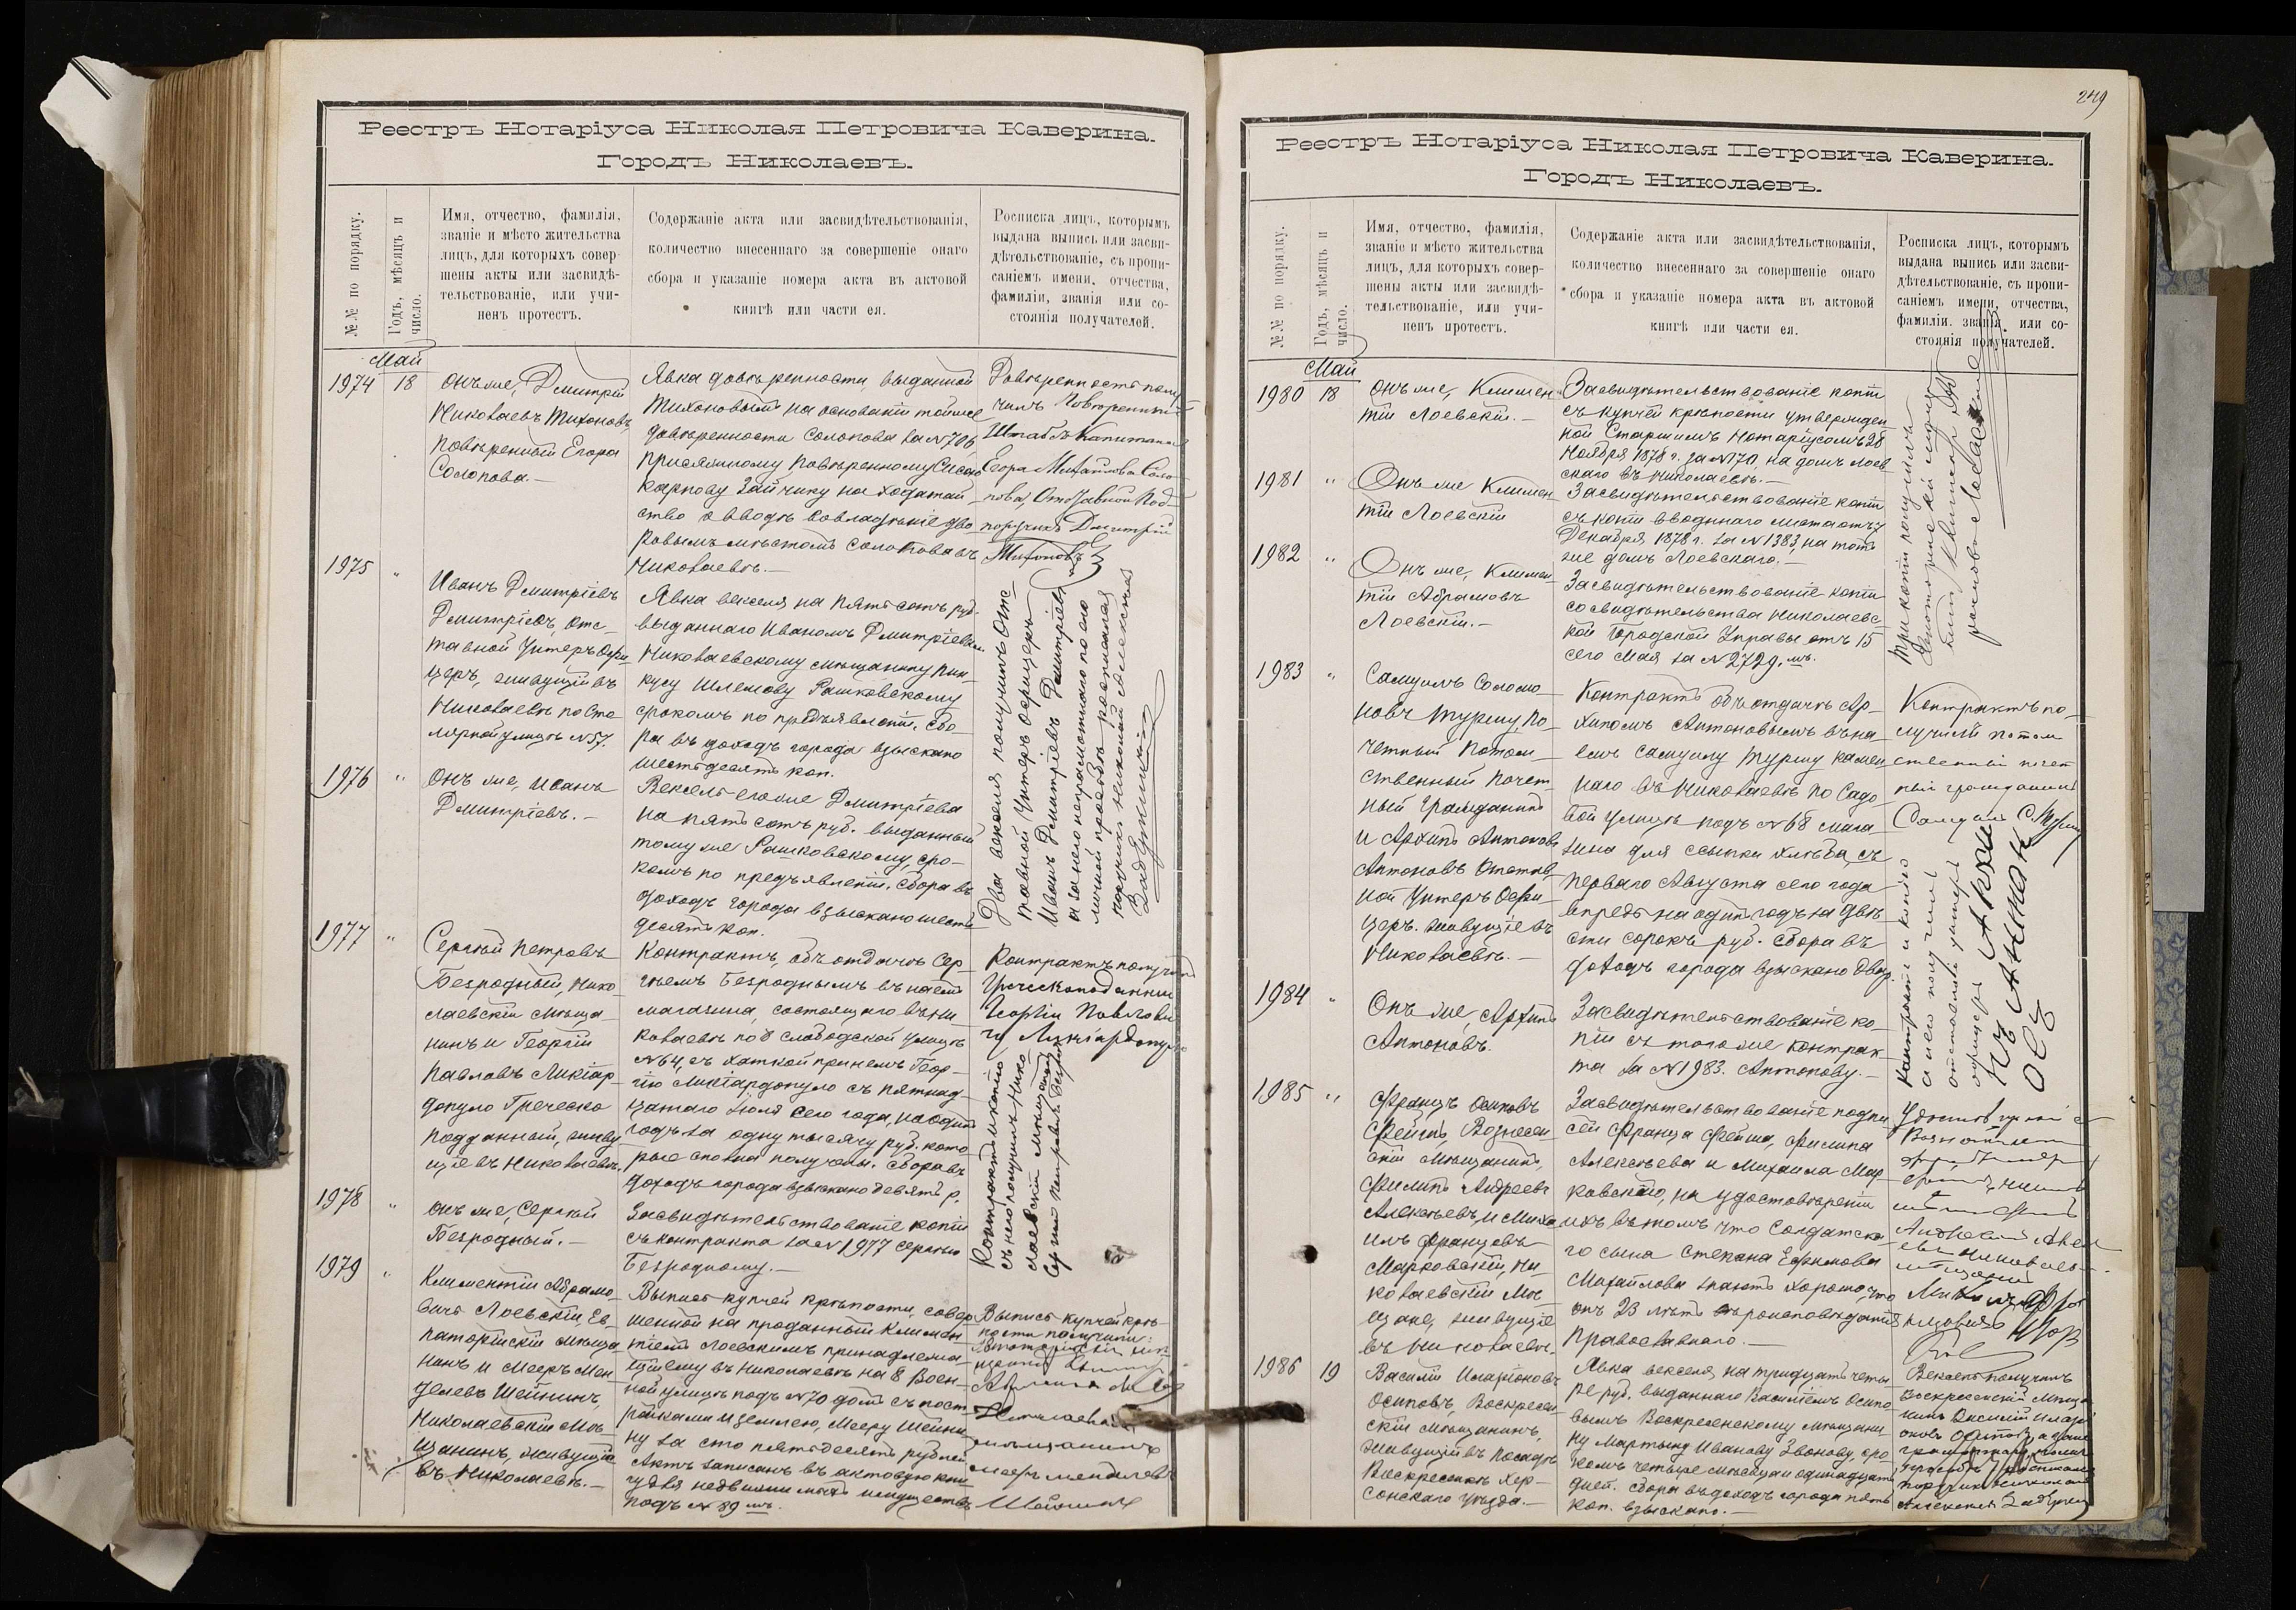 Реестръ Нотаріуса Николая Петровича Каверина.
Городъ Николаевъ.
№№ по порядку.
Годъ, мѣсяцъ и
число.
Имя, отчество, фамилія,
званіе и мѣсто жительства
лицъ, для которыхъ совер-
шены акты или засвидѣ-
тельствованіе, или учи-
ненъ протестъ.
Содержаніе акта или засвидѣтельствованія,
количество внесеннаго за совершеніе онаго
сбора и указаніе номера акта въ актовой
книгѣ или части ея.
Росписка лицъ, которымъ
выдана выпись или засви-
дѣтельствованіе, съ пропи-
саніемъ имени, отчества,
фамиліи, званія или со-
стоянія получателей.
Май
1974 18
Онъ же, Дмитрій
Николаевъ Тихоновъ,
повѣренный Егора
Солопова.—
Явка довѣренности, выданной
Тихоновымъ на основаніи той же
довѣренности Солопова за № 706
присяжному повѣренному
Карпову Зайчику на ходатай-
ство о вводѣ во владѣніе дво-
ровымъ мѣстомъ Солопова въ
Николаевѣ.—
Довѣренность полу-
чилъ Повѣренный
Штабсъ Капитана
Егора Михайлова Соло-
пова, Отставной Под-
поручикъ Дмитрій
Тихоновъ
1975 "
Иванъ Дмитріевъ
Дмитріевъ, отс-
тавной Унтеръ Офи-
церъ, живущій въ
Николаевѣ по Сто-
лярной улицѣ № 57.
Явка векселя на пятьсотъ руб.
выданнаго Иваномъ Дмитріевымъ
Николаевскому мѣщанину Пин-
кусу Шлемову Рашковскому
срокомъ по предъявленіи. Сбо-
ра въ доходъ города взыскано
шестьдесятъ коп.
1976 "
Онъ же, Иванъ
Дмитріевъ.—
Вексель его же Дмитріева
на пятьсотъ руб. выданный
тому же Рашковскому, сро-
комъ по предъявленіи. Сбора въ
доходъ города взыскано шесть
десятъ коп.
Два векселя получилъ отс-
тавной Унтеръ офицеръ
Иванъ Дмитріевъ Дмитріевъ
а за него неграмотнаго по его
личной просьбѣ росписался
1977 "
Сергѣй Петровъ
Безродный, Нико-
лаевскій мѣща-
нинъ и Георгій
Павловъ Ликіар-
допуло Греческо
подданный, живу-
щіе въ Николаевѣ.
Контрактъ, объ отдачѣ Сер-
гѣемъ Безроднымъ въ наемъ
магазина, состоящаго въ Ни-
колаевѣ по 8 слободской улицѣ
№ 64, съ хаткой при немъ Геор-
гію Ликіардопуло съ пятнад-
цатаго Іюля сего года, на одинъ
годъ за одну тысячу руб. кото-
рые сполна получены. Сбора въ
доходъ города взыскано девять р.
Контрактъ получилъ
Греческоподанный
Георгій Павлови
чъ Ликіардопуло
1978 "
Онъ же, Сергѣй
Безродный.—
Засвидѣтельствованіе копіи
съ контракта за № 1977 Сергѣю
Безродному.—
Контрактъ и копію
съ него получилъ Нико
лаевскій мѣщанинъ
Сергѣй Петровъ Безродный
1979 "
Климентій Абрамо-
вичъ Лоевскій, Ев-
паторійскій мѣща-
нинъ и Мееръ Мен-
делевъ Шейнинъ,
Николаевскій мѣ-
щанинъ, живущіе
въ Николаевѣ.—
Выпись купчей крѣпости, совер-
шенной на проданный Климен-
тіемъ Лоевскимъ принадлежа-
щій ему въ Николаевѣ на 8 Воен-
ной улицѣ подъ № 70 домъ съ пост-
ройками и землею, Мееру Шейни-
ну за сто пятьдесятъ рублей
Актъ записанъ въ актовую кни-
гу для недвижимыхъ имуществъ
подъ № 89.
Выпись купчей крѣ-
пости получили:
Николаевскій
мѣщанинъ
Мееръ Менделевъ
Шейнинъ
249
Реестръ Нотаріуса Николая Петровича Каверина.
Городъ Николаевъ.
№№ по порядку.
Годъ, мѣсяцъ и
число.
Имя, отчество, фамилія,
званіе и мѣсто жительства
лицъ, для которыхъ совер-
шены акты или засвидѣ-
тельствованіе, или учи-
ненъ протестъ.
Содержаніе акта или засвидѣтельствованія,
количество внесеннаго за совершеніе онаго
сбора и указаніе номера акта въ актовой
книгѣ или части ея.
Росписка лицъ, которымъ
выдана выпись или засви-
дѣтельствованіе, съ пропи-
саніемъ имени, отчества,
фамиліи. званія. или со-
стоянія получателей.
Май
1980 18
Онъ же, Климен-
тій Лоевскій.—
Засвидѣтельствованіе копіи
съ купчей крѣпости утвержден-
ной Старшимъ Нотаріусомъ 28
Ноября 1878 г. за № 170, на домъ Лоев-
скаго въ Николаевѣ.—
1981 "
Онъ же Климен-
тій Лоевскій
Засвидѣтельствованіе копіи
съ копіи вводнаго листа отъ 7
Декабря 1878 г. за № 1383, на тотъ
же домъ Лоевскаго.—
1982 "
Онъ же, Климен-
тій Абрамовъ
Лоевскій.—
Засвидѣтельствованіе копіи
со свидѣтельства Николаевс-
кой Городской Управы отъ 15
сего Мая за № 2729.
Три копіи получилъ
1983 "
Самуилъ Соломо-
новъ Туршу, по-
четный потом-
ственный почет-
ный гражданинъ
и Архипъ Антоновъ
Антоновъ Отстав-
ной Унтеръ Офи-
церъ. живущіе въ
Николаевѣ.—
Контрактъ объ отдачѣ Ар-
хипомъ Антоновымъ въ на-
емъ Самуилу Туршу камен-
наго въ Николаевѣ по Садо-
вой улицѣ подъ № 68 мага-
зина для ссыпки хлѣба, съ
перваго Августа сего года
впредь на одинъ годъ за двѣ-
сти сорокъ руб. Сбора въ
доходъ города взыскано два р.
Контрактъ по-
лучилъ потом
ственный почет
ный гражданинъ
1984 "
Онъ же, Архипъ
Антоновъ.
Засвидѣтельствованіе ко-
піи съ того же контрак-
та за № 1983. Антонову.—
Контрактъ и копію
с него получилъ
отставной унтеръ
офицеръ Архи
пъ Антон
овъ
1985 "
Францъ Осиповъ
Фейтъ, Вознесен-
скій мѣщанинъ,
Филипъ Андреевъ
Алексѣевъ, и Миха-
илъ Францовъ
Марковскій, Ни-
колаевскіе мѣ-
щане, живущіе
въ Николаевѣ.
Засвидѣтельствованіе подпи-
сей Франца Фейта, Филипа
Алексѣева и Михаила Мар-
ковскаго, на удостовѣреніи
ихъ въ томъ что Солдатска-
го сына Степана Ефимова
Михайлова знаютъ хорошо, что
онъ 23 лѣтъ вѣроисповѣданія
Православнаго.—
1986 19
Василій Иларіоновъ
Осиповъ, Воскресен-
скій мѣщанинъ,
живущій въ посадѣ
Воскресенскѣ Хер-
сонскаго уѣзда.—
Явка векселя, на тридцать четы-
ре руб. выданнаго Василіемъ Осипо-
вымъ Воскресенскому мѣщани-
ну Мартыну Иванову Звонову, сро-
комъ четыре мѣсяца и одинадцать
дней. Сбора въ доходъ города пять
коп. взыскано.—
Вексель получилъ
Воскресенскій мѣща-
нинъ Василій Илларі
оновъ Осиповъ, а за не